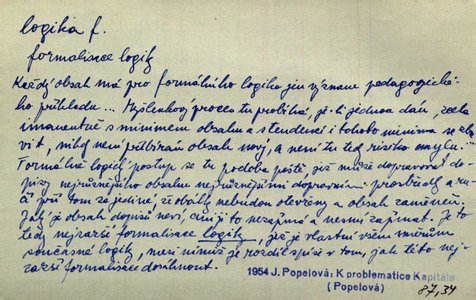 logika f.
formalisace logik
Každý obsah má pro formálního logika jen význam pedagogické-
ho příkladu... Myšlenkový proces tu probíhá, je-li jednou dán, zcela
imanentně s minimem obsahu a s tendencí i tohoto minima se zba-
vit, nikoli není přibírán obsah nový, a není tu tedy risika omylu...
Formálně logický postup se tu podobá poště, jež může dopravovat do-
pisy nejrůznějšího obsahu nejrůznějšími dopravními prostředky a ru-
čí při tom za jediné, že obálky nebudou otevřeny a obsah zaměněn.
Jaký je obsah dopisů neví, ani ji to nezajímá a nesmí zajímat. Je to
tedy nejrazší formalisace logiky, jež je vlastní všem směrům
současné logiky, mezi nimiž je rozdíl spíše v tom, jak této nej-
razší formalisace dosáhnout.
1954 J. Popelová: K problematice Kapitálu
(Popelová)
87,34